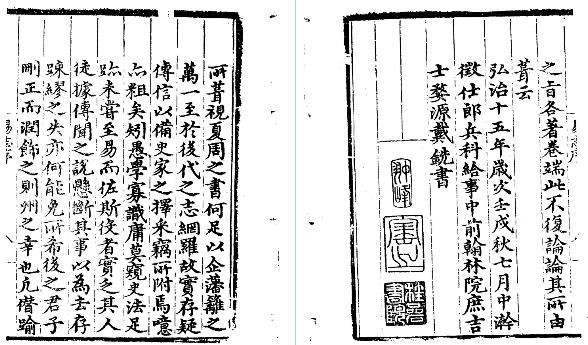 之旨各著卷端此不復論論其所由
葺云
弘治十五年歲次壬戌秋七月中澣
徵仕郎兵科給事中前翰林院庶吉
士婺源戴銑書
翀峰
所葺視夏周之書何足以企藩籬之
萬一至於後代之志網羅故實存疑
傳信以備史家之擇采竊所附焉噫
亦粗矣矧愚學寡識庸莫窺史法足
跡未嘗至易而佐斯役者實乏其人
徒據傳聞之說懸斷其事以為去存
踈繆之失亦何能免所希後之君子
刪正而潤飾之則州之幸也凡僭踰